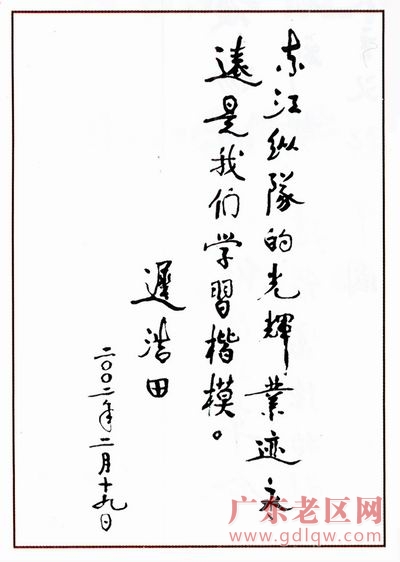 东江纵隊的光輝業迹永
遠是我们学習楷模。
遲浩田
二〇〇二年二月十九日
广东老区网
www.gdlqw.com